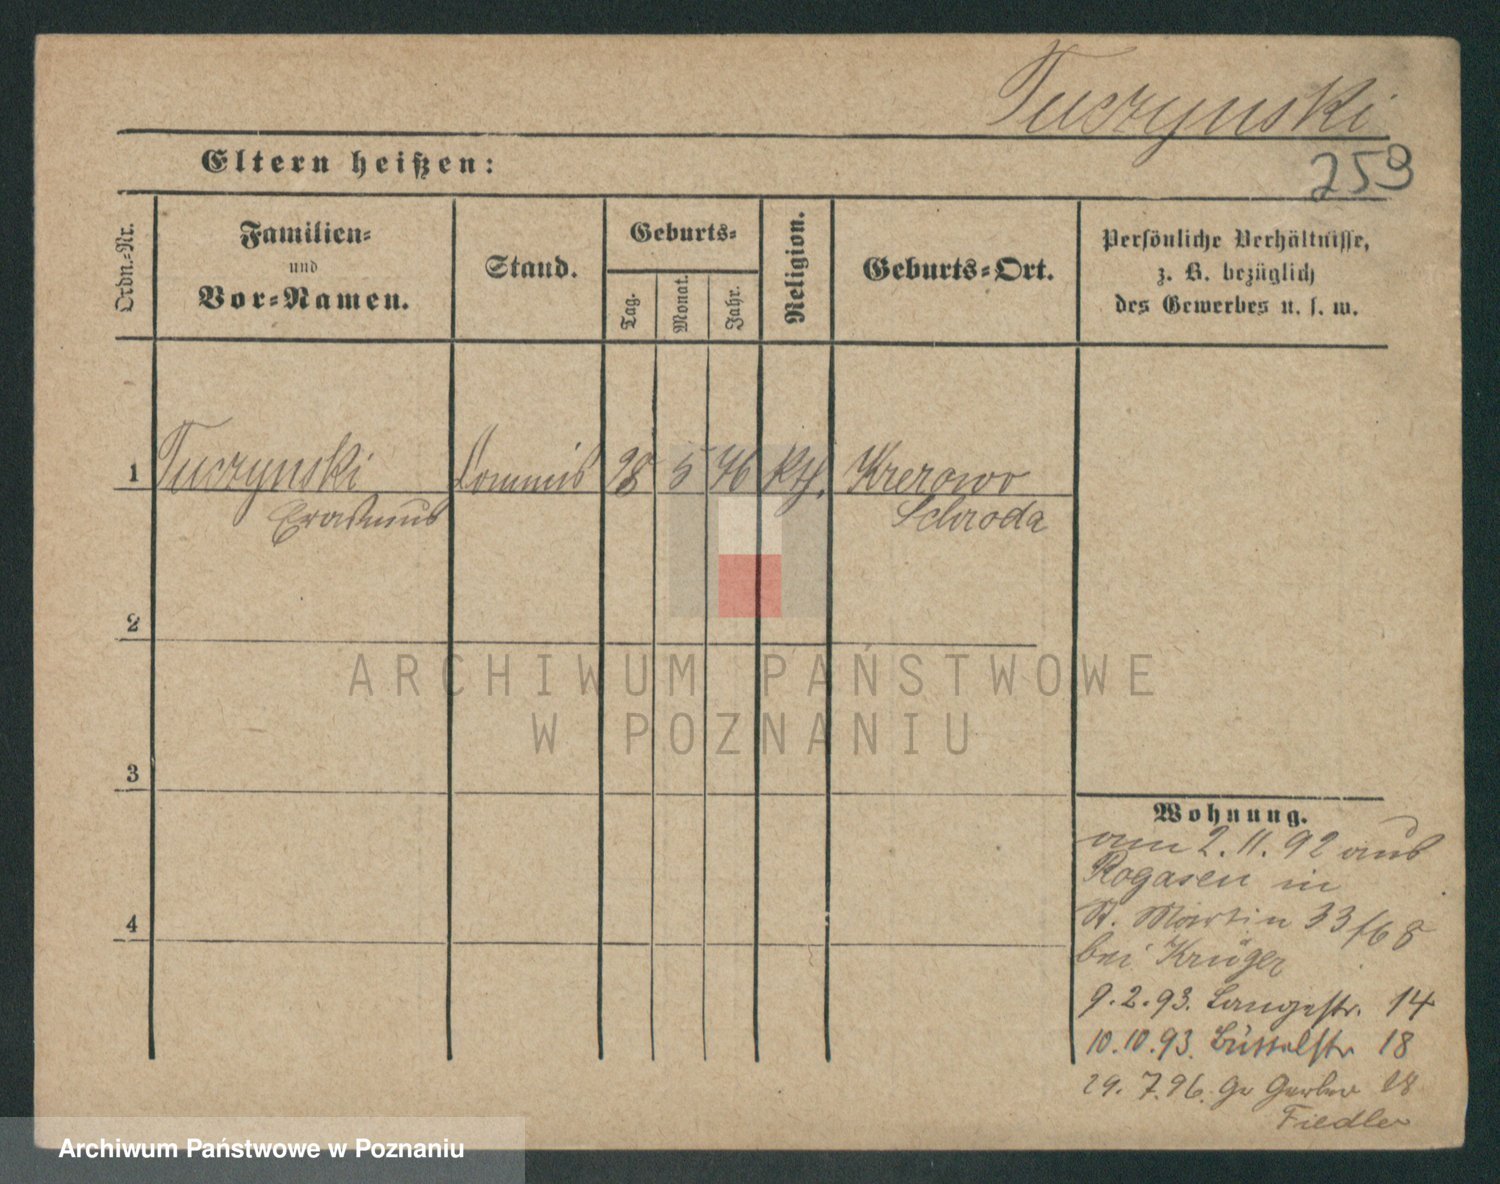 Tuczynski
Eltern heißen:
253
Ordn.-Nr.
Familien-
und
Vor-Namen.
Stand.
Geburts-
Tag.
Monat.
Jahr.
Religion.
Geburts-Ort.
Persönliche Verhältnisse,
z. B. bezüglich
des Gewerbes u. s. w.
1 Tuczynski Commis 28 5 76 Kth. Krerowo
Erasmus Schroda
2
3
4
Wohnung.
am 2. 11. 92 aus
Rogasen in
St. Martin 33
bei Krüger
9. 2. 93. Langestr. 14
10. 10. 93. Büttelstr 18
29. 7. 96. Gr Gerber 18
Fiedler
ARCHIWUM PAŃSTWOWE
W POZNANIU
Archiwum Państwowe w Poznaniu